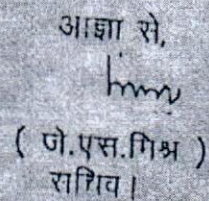 आज्ञा से,
( जे.एस.मिश्र )
सचिव।